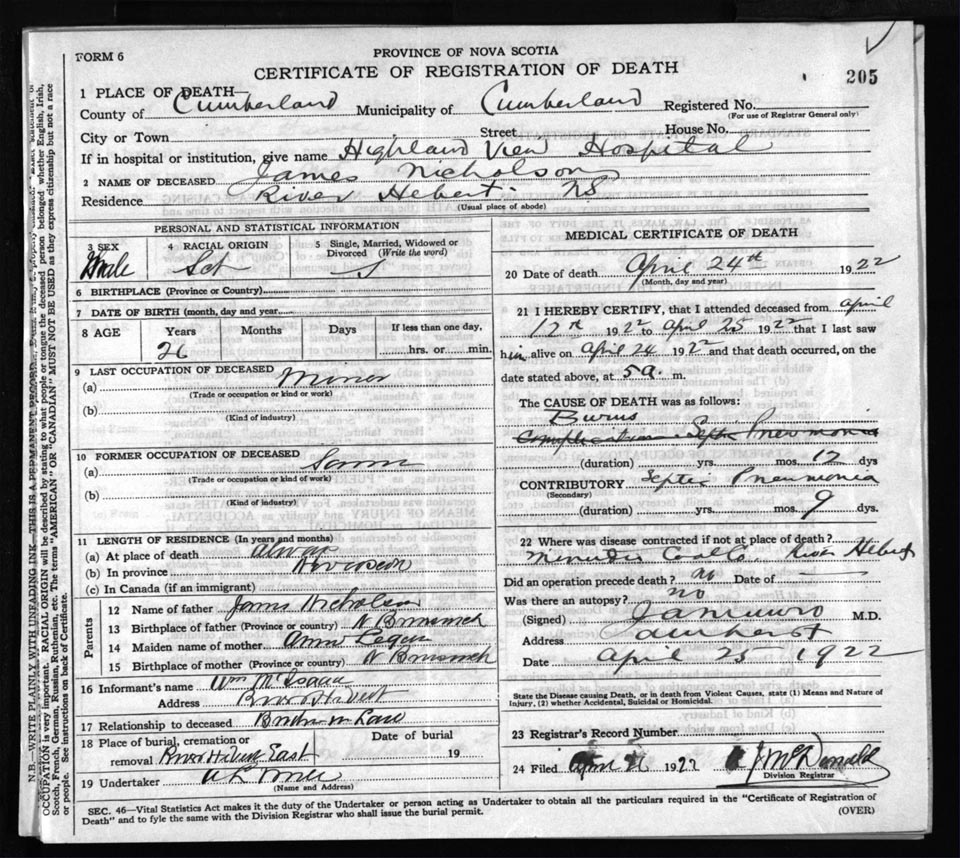 FORM 6
PROVINCE OF NOVA SCOTIA
CERTIFICATE OF REGISTRATION OF DEATH
205
1 PLACE OF DEATH—
County of Cumberland Municipality of Cumberland Registered No.
(For use of Registrar General only)
City or Town Street House No.
If in hospital or institution, give name Highland View Hospital
2 NAME OF DECEASED James Nicholson
Residence River Hebert NS
(Usual place of abode)
PERSONAL AND STATISTICAL INFORMATION
3 SEX
Male
4 RACIAL ORIGIN
Sct
5 Single, Married, Widowed or Divorced (Write the word)
S
6 BIRTHPLACE (Province or Country)
7 DATE OF BIRTH (month, day and year)
8 AGE Years Months Days If less than one day,
26 hrs. or min.
9 LAST OCCUPATION OF DECEASED
(a) Minor
(Trade or occupation or kind or work)
(b)
(Kind of industry)
10 FORMER OCCUPATION OF DECEASED
(a)
(Trade or occupation or kind of work)
(b)
(Kind of industry)
11 LENGTH OF RESIDENCE (In years and months)
(a) At place of death
(b) In province
(c) In Canada (if an immigrant)
Parents
12 Name of father James Nicholson
13 Birthplace of father (Province or country) N Brunswick
14 Maiden name of mother Anne
15 Birthplace of mother (Province or country) N Brunswick
16 Informant's name Wm McIsaac
Address River Hebert
17 Relationship to deceased Brother in Law
18 Place of burial, cremation or removal River Hebert East
Date of burial
19
19 Undertaker
(Name and Address)
MEDICAL CERTIFICATE OF DEATH
20 Date of death April 24th 1922
(Month, day and year)
21 I HEREBY CERTIFY, that I attended deceased from April
12th 1922 to April 25 1922 that I last saw
him alive on April 24 1922 and that death occurred, on the
date stated above, at 5 a. m.
The CAUSE OF DEATH was as follows:
Burns
Septic Pneumonia
(duration) yrs. mos. 12 dys
CONTRIBUTORY Septic Pneumonia
(Secondary)
(duration) yrs. mos. 9 dys.
22 Where was disease contracted if not at place of death?
Minudie Coal Co River Hebert
Did an operation precede death? no Date of
Was there an autopsy? no
(Signed) M.D.
Address Amherst
Date April 25 1922
State the Disease causing Death, or in death from Violent Causes, state (1) Means and Nature of
Injury, (2) whether Accidental, Suicidal or Homicidal.
23 Registrar's Record Number
24 Filed April 1922 J McDonald
Division Registrar
SEC. 46—Vital Statistics Act makes it the duty of the Undertaker or person acting as Undertaker to obtain all the particulars required in the "Certificate of Registration of
Death" and to fyle the same with the Division Registrar who shall issue the burial permit.
(OVER)
N.B.—WRITE PLAINLY WITH UNFADING INK—THIS IS A PERMANENT RECORD.
OCCUPATION is very important. RACIAL ORIGIN will be described by stating to what people or tongue the deceased person belonged whether English, Irish,
Scotch, French, German, Russian, Ruthenian, etc. The terms "AMERICAN" OR "CANADIAN" MUST NOT BE USED as they express citizenship but not a race
or people. See instructions on back of Certificate.